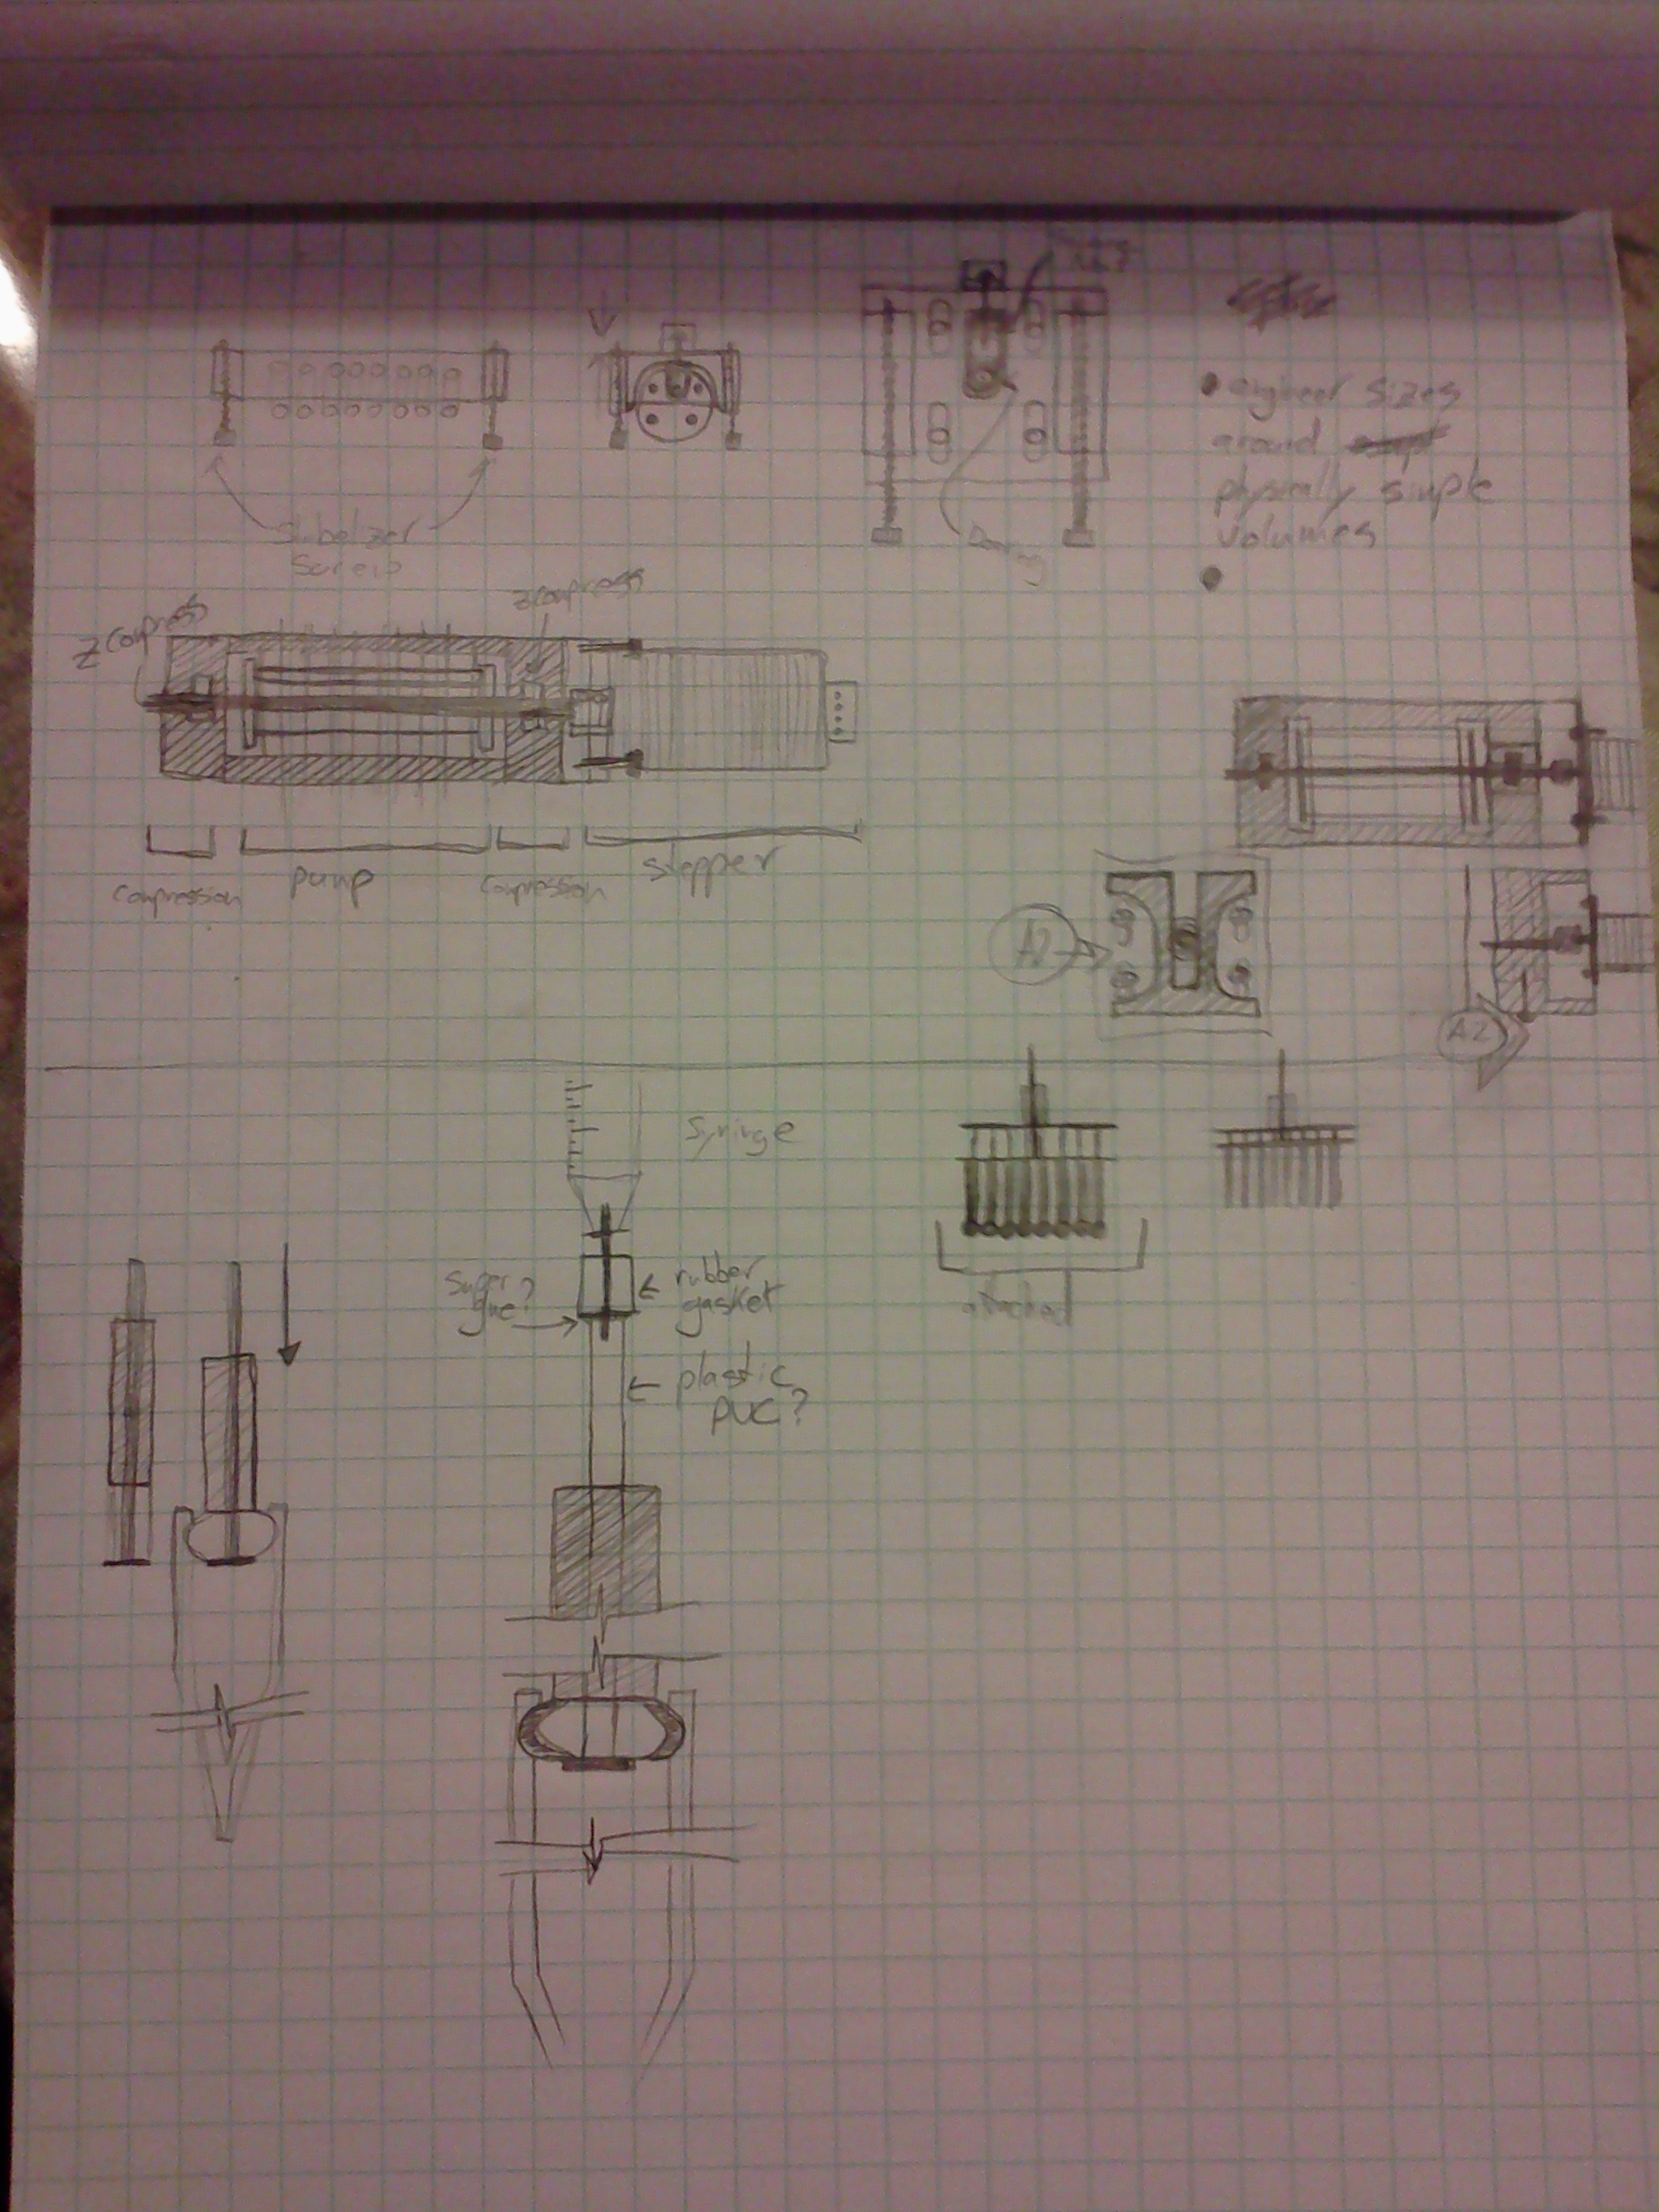 • engineer sizes
around
physically simple
volumes
•
Z compress
Z compress
compression
pump
compression
stepper
A2
A2
Syringe
super
glue?
rubber
gasket
plastic
PVC?
attached